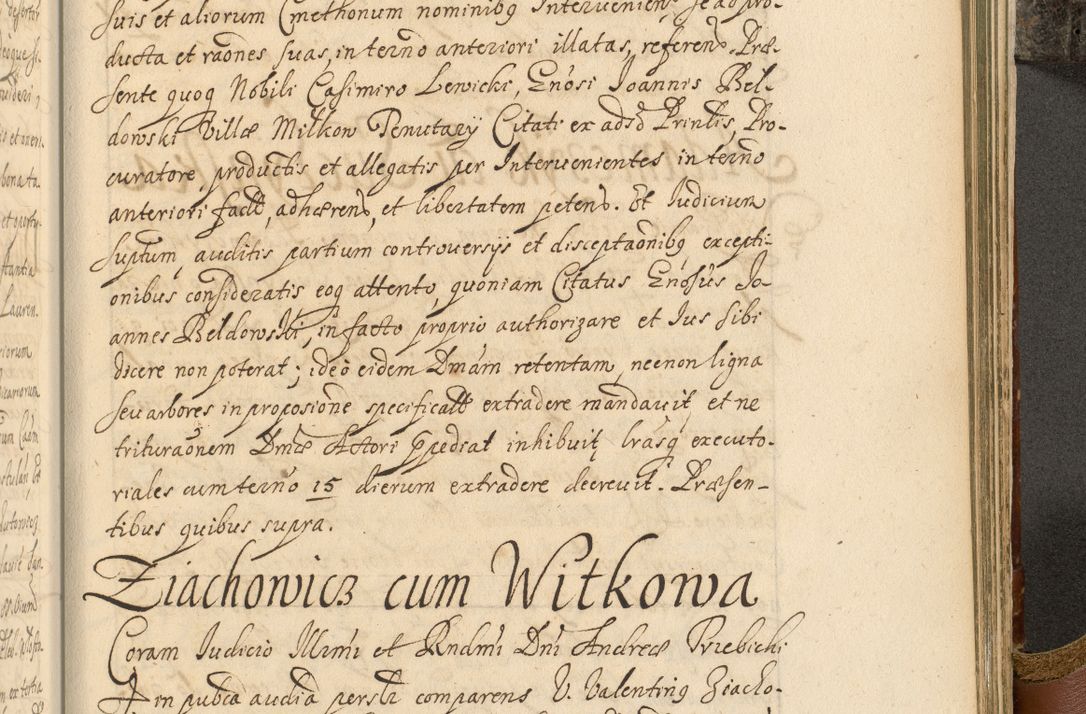 suis et aliorum Cmethonum nominibq Intervenienս se ad pro-
ducta et raones suas, in terno anteriori illatas, referens. Præ-
sente quoq Nobili Casimiro Lewicki, Gnosi Joannis Bel-
dowski Villæ Milkow Tenutary Citati ex adsd Printis, Pro-
curatore, productis et allegatis per Intervenientes in terno
anteriori fact, adhærens, et libertatem petens. Et Judicium
suptum, auditis partium controversijs et disceptaonibq, excepti-
onibus consideratis eoq attento, quoniam Citatus Gnosus Jo-
annes Beldowski, in facto proprio authorizare et Jus sibi
dicere non poterat; ideo eidem Dmam retentam, necnon ligna
seu arbores in proposione specificatt extradere mandavit, et ne
trituraonem Dmæ Actori ppediat inhibuit, lrasq executo-
riales cum terno 15 dierum extradere decrevit. Præsen-
tibus quibus supra.
Ziachowicz cum Witkowa
Coram Judicio Illrmi et Rndmi Dni Andreæ Trzebicki
in pubca audia perslr comparens V. Valentinq Ziacho-